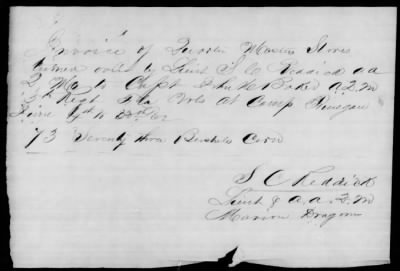 Invoice of Quarter Masters Stores
turned over by Lieut S. C. Reddick a a
Q M to Capt John M Baker A.Q.M
Regt Fla Vols at Camp Finegan
73 Seventy three Bushels Corn
S C Reddick
Lieut & a. a. Q. M
Marion Dragoons